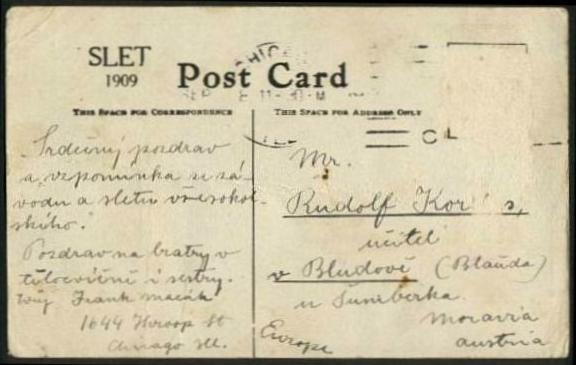 SLET
1909
Post Card
CHIC
SEP
THIS SPACE FOR CORRESPONDENCE
THIS SPACE FOR ADDRESS ONLY
Srdečný pozdrav
a vzpomínka se zá-
vodu a sletu všesokol-
ského.
Pozdrav na bratry v
tělocvičně i sestry.
Tvůj Frank
1644 St
Chicago Ill.
Mr.
Rudolf
učitel
v Bludově (Blauda)
u Šumberka
Moravia
Austria
Europe